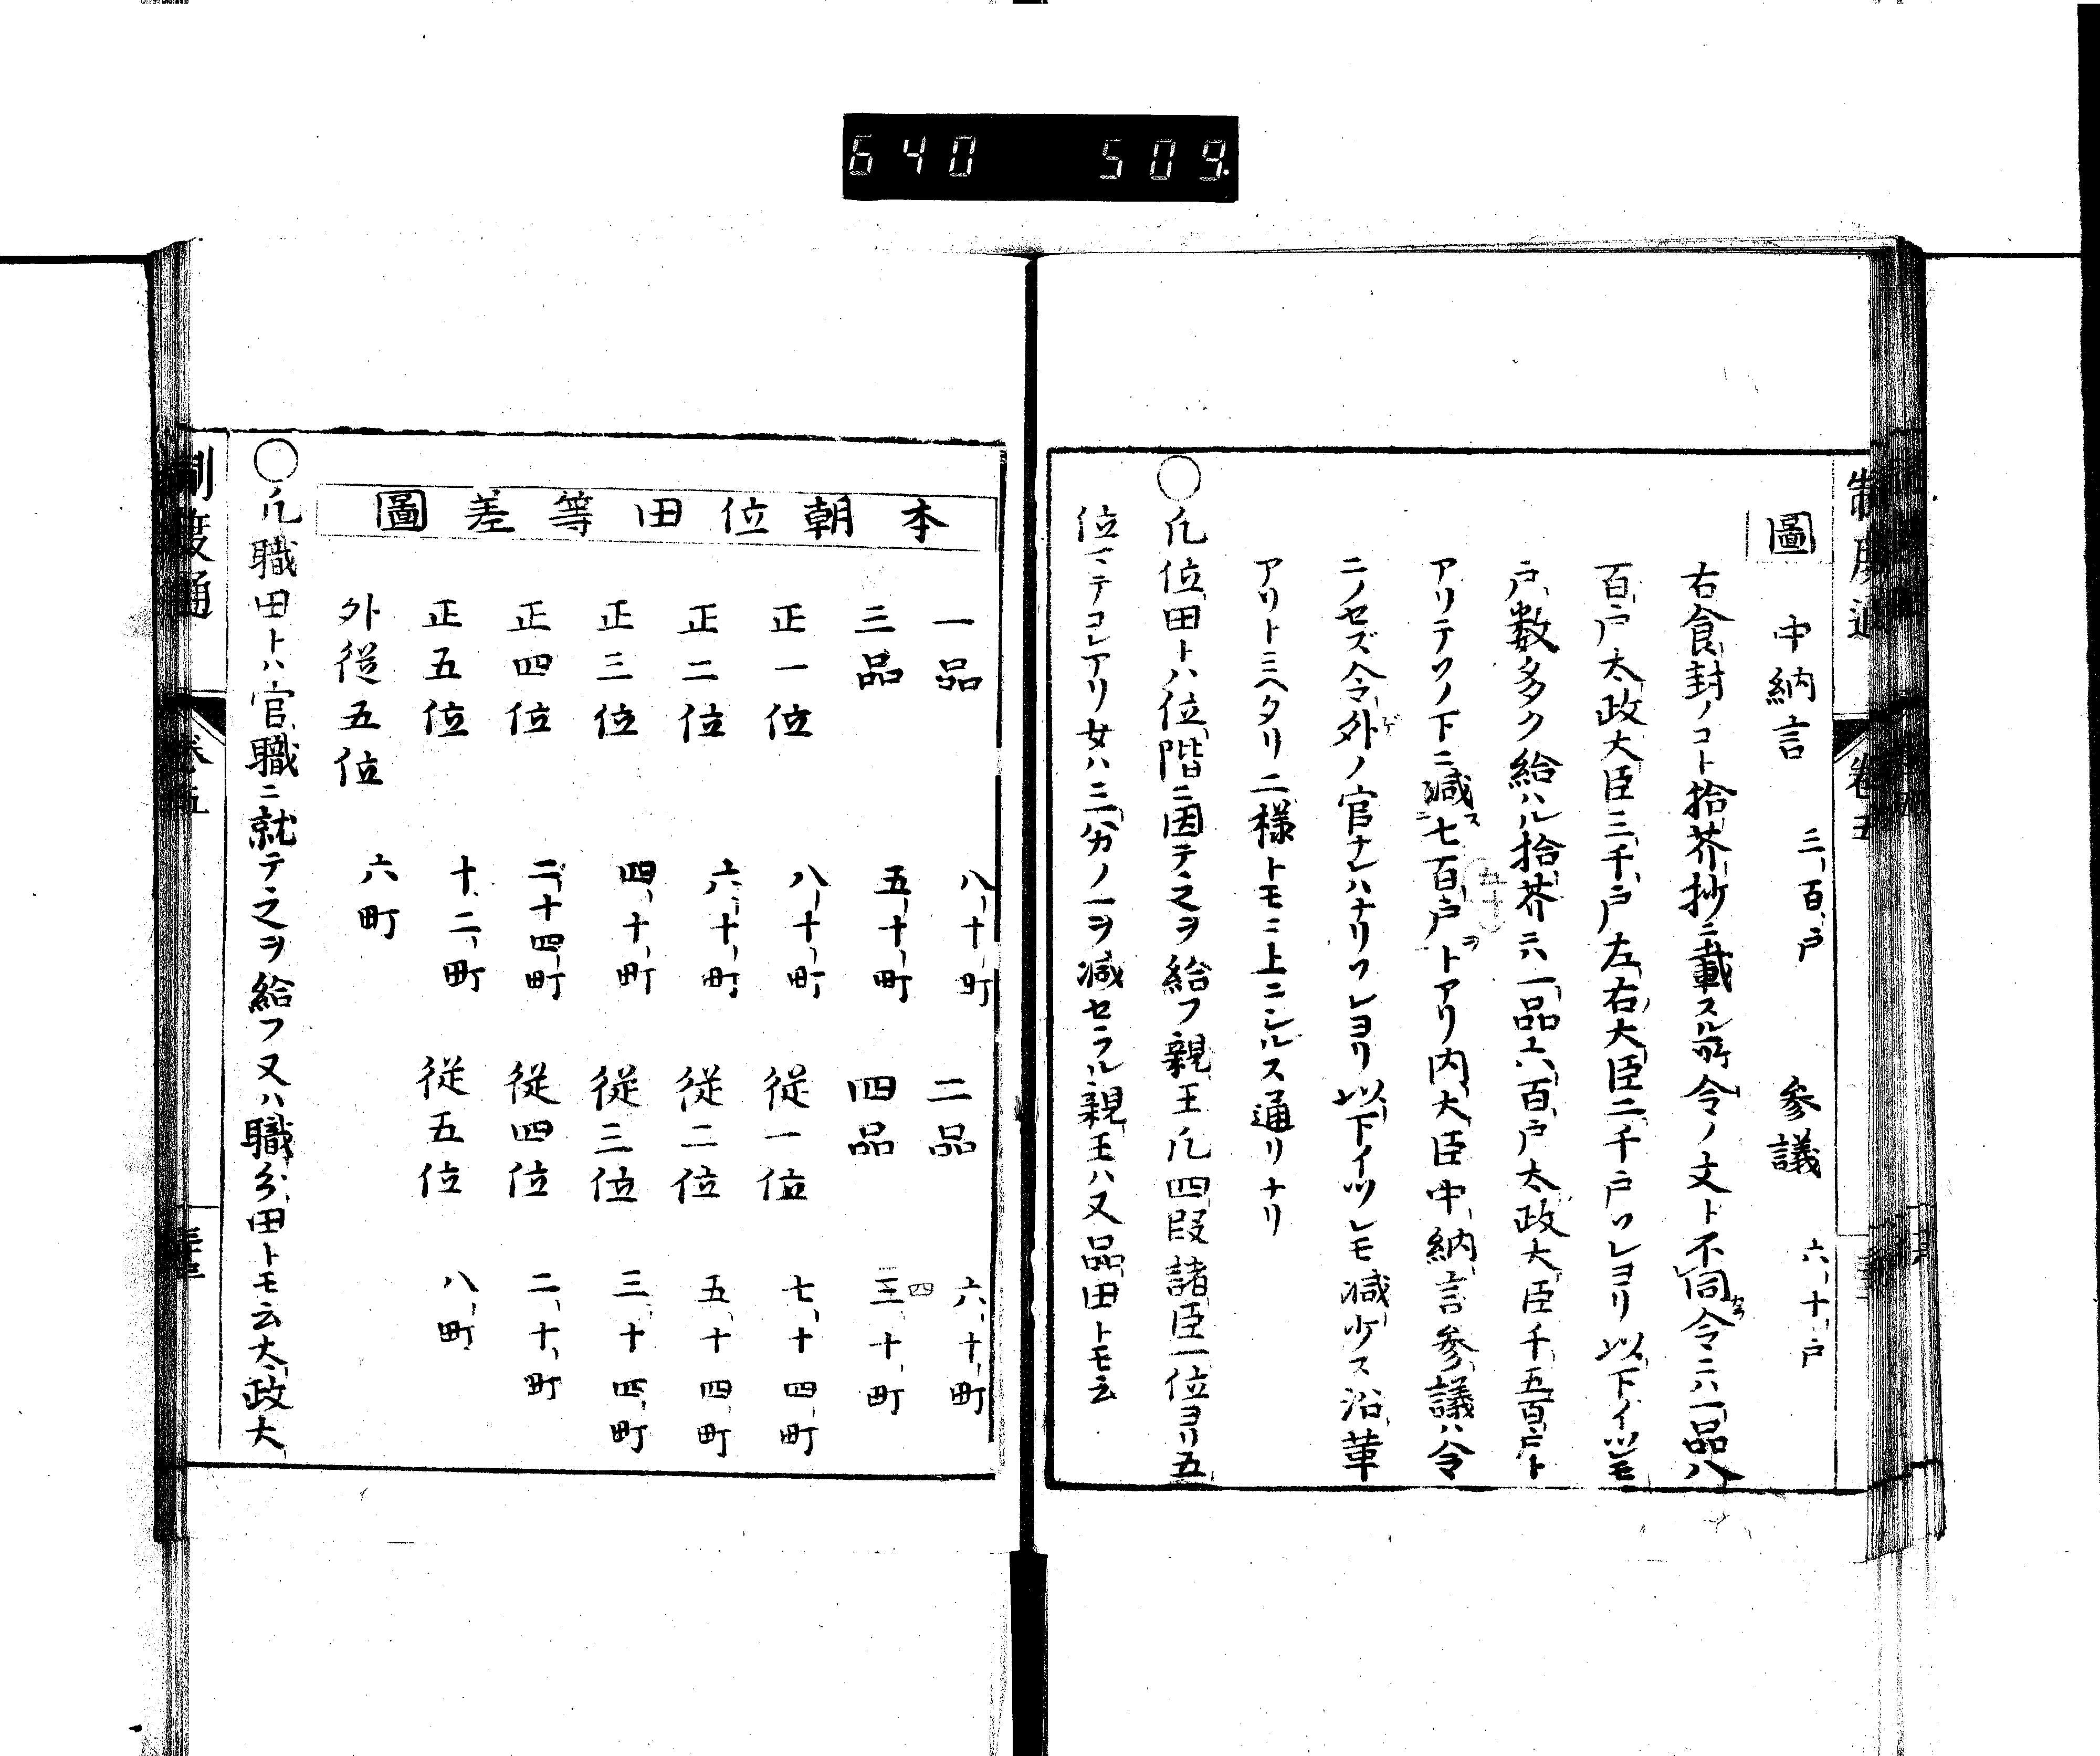 640 509.
制度通 卷五
圖 中納言 三百戸 参議 六十戸
右食封ノコト拾芥抄ニ載スル所令ノ文ト不同令ニハ一品八
百戸太政大臣三千戸左右大臣二千戸ソレヨリ以下イツレモ
戸数多ク給ハル拾芥ニハ一品六百戸太政大臣千五百戸ト
アリテソノ下ニ減ス七百戸ヲトアリ内大臣中納言参議ハ令
ニノセズ令外ノ官ナレハナリソレヨリ以下イツレモ減少ス沿革
アリトミヘタリ二様トモニ上ニシルス通リナリ
〇凡位田トハ位階ニ因テ之ヲ給フ親王凡四段諸臣一位ヨリ五
位マテコレアリ女ハ三分ノ一ヲ減セラル親王ハ又品田トモ云
本朝位田等差圖
一品 八十町 二品 六十町
三品 五十町 四品 三十町 四
正一位 八十町 従一位 七十四町
正二位 六十町 従二位 五十四町
正三位 四十町 従三位 三十四町
正四位 二十四町 従四位 二十町
正五位 十二町 従五位 八町
外従五位 六町
〇凡職田トハ官職ニ就テ之ヲ給フ又ハ職分田トモ云大政大
制度通 卷五